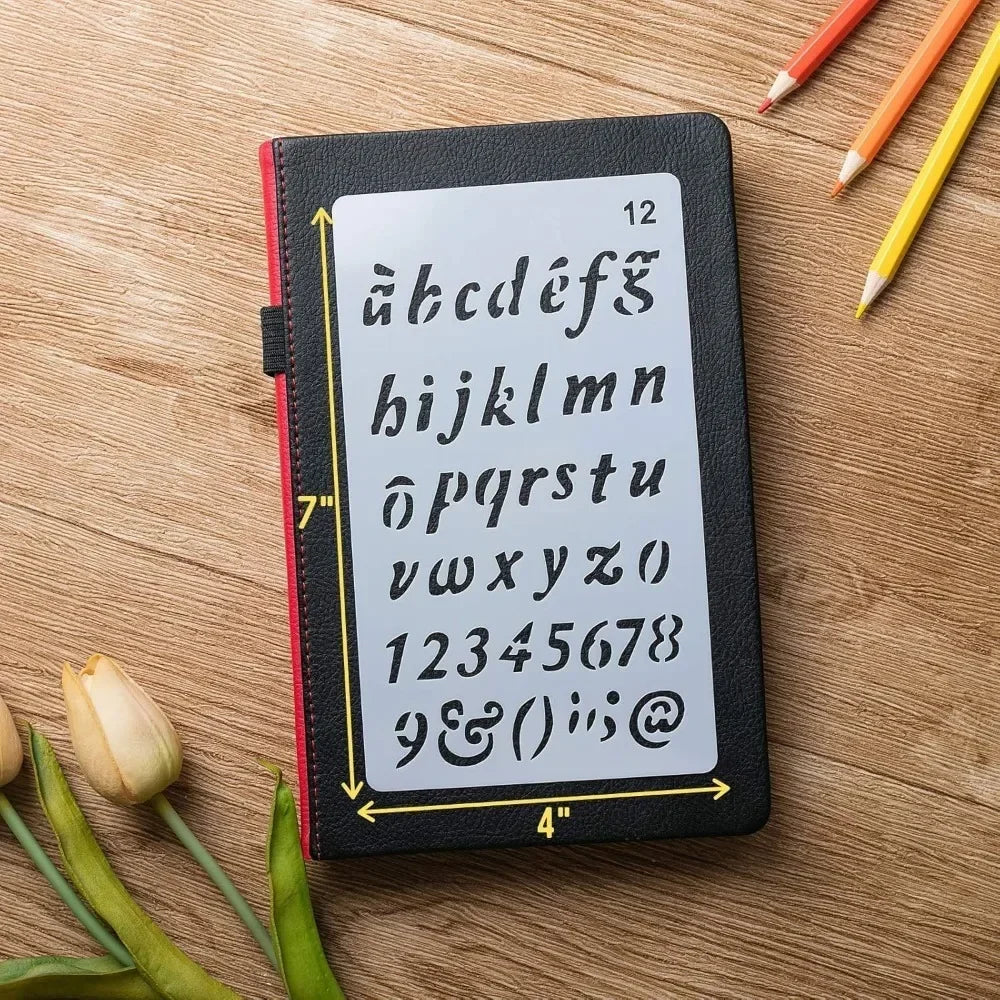 12
àbcdéfg̃
hijklmn
ôpqrstu
vwxyz0
12345678
9&()¡!;@
7"
4"